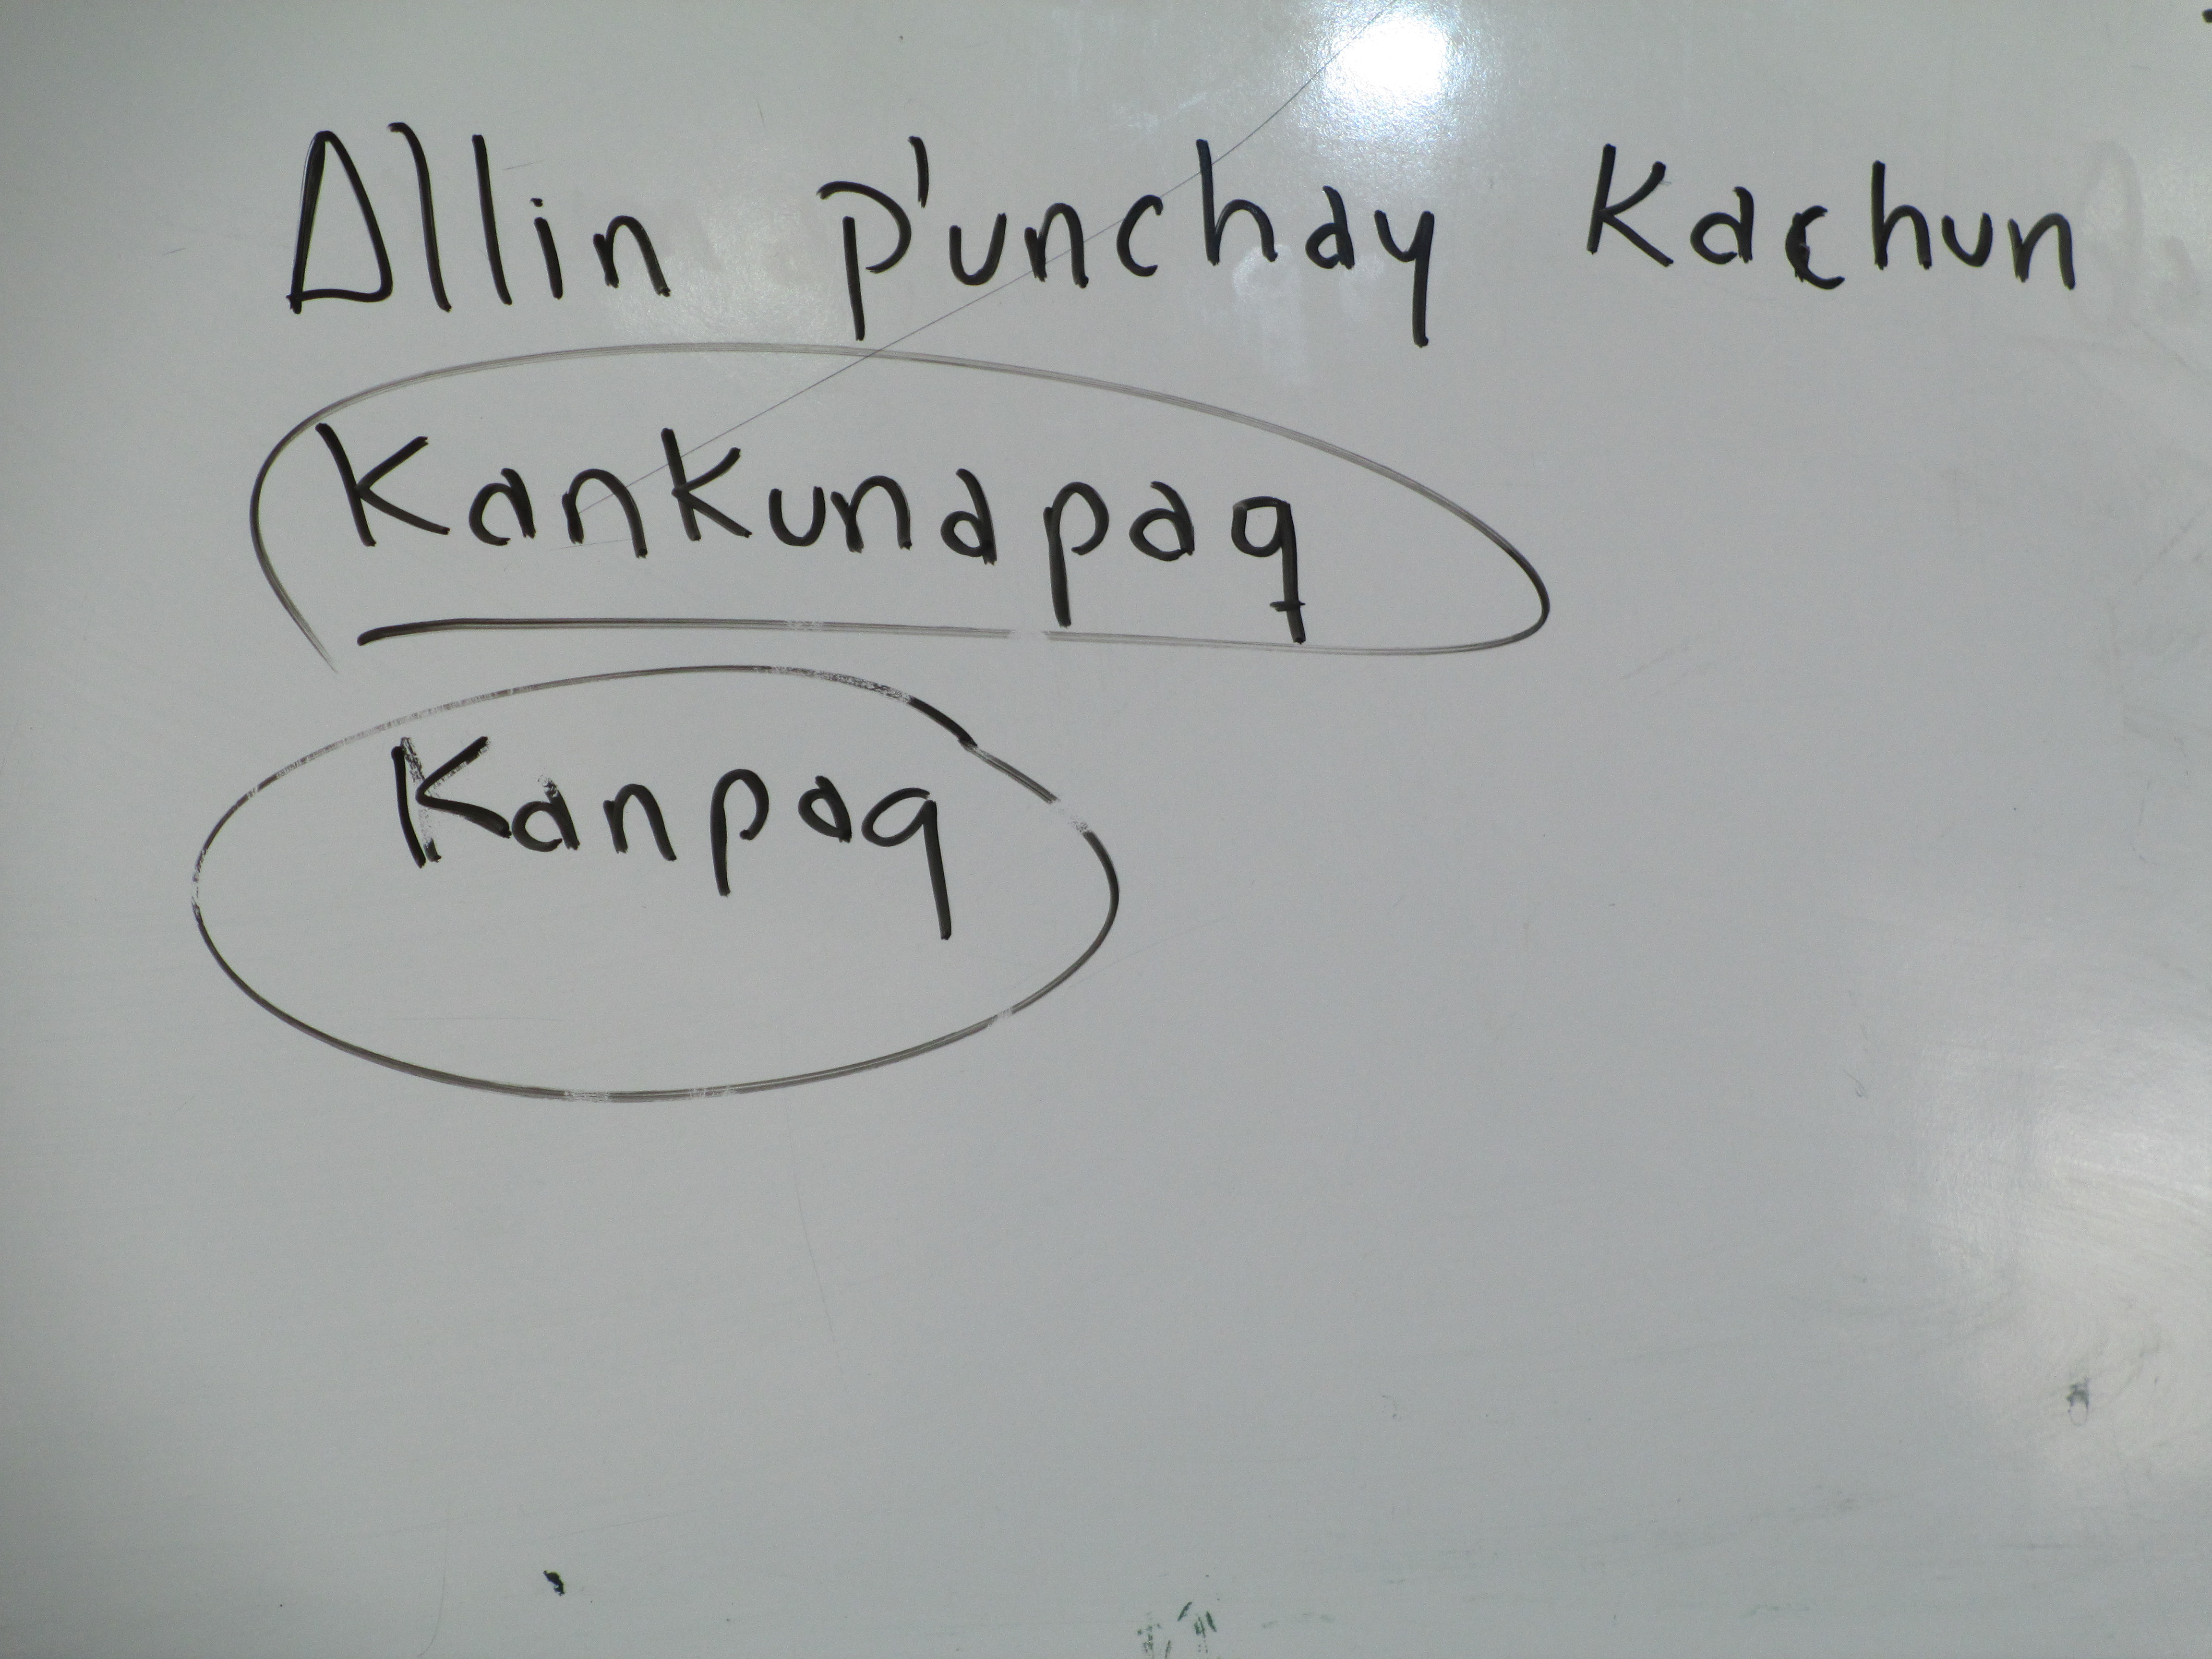 Allin p'unchay Kachun
Kankunapaq
Kanpaq